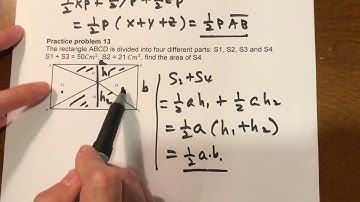 ½xp + ½yp + ½zp
= ½p (x + y + z) = ½p AB̅
Practice problem 13
The rectangle ABCD is divided into four different parts: S1, S2, S3 and S4.
S1 + S3 = 50Cm², S2 = 21 Cm², find the area of S4.
h₁
h₂
b
S₂ + S₄
= ½ah₁ + ½ah₂
= ½a(h₁ + h₂)
= ½a.b.